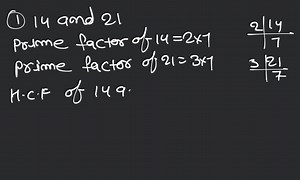 ① 14 and 21
prime factor of 14 = 2×7
prime factor of 21 = 3×7
H.C.F of 14 a
2 | 14
7
3 | 21
7